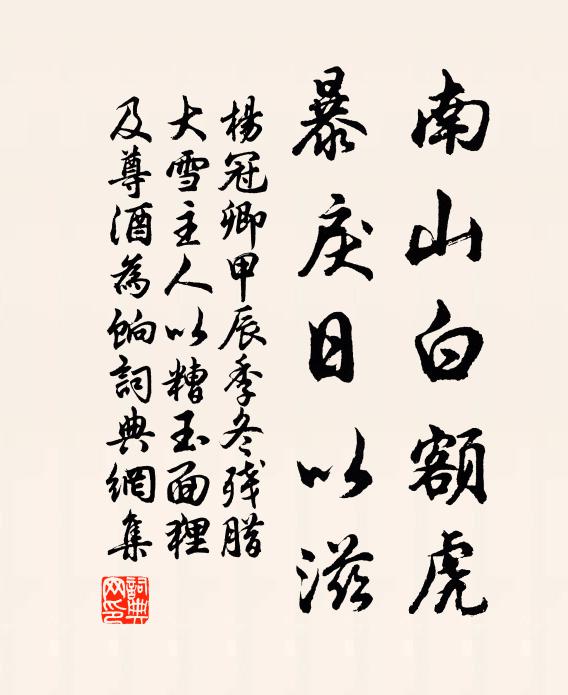 南山白額虎
暴戾日以滋
楊冠卿甲辰季冬残腊
大雪主人以糟玉面狸
及尊酒為餉詞典網集
詞典网印